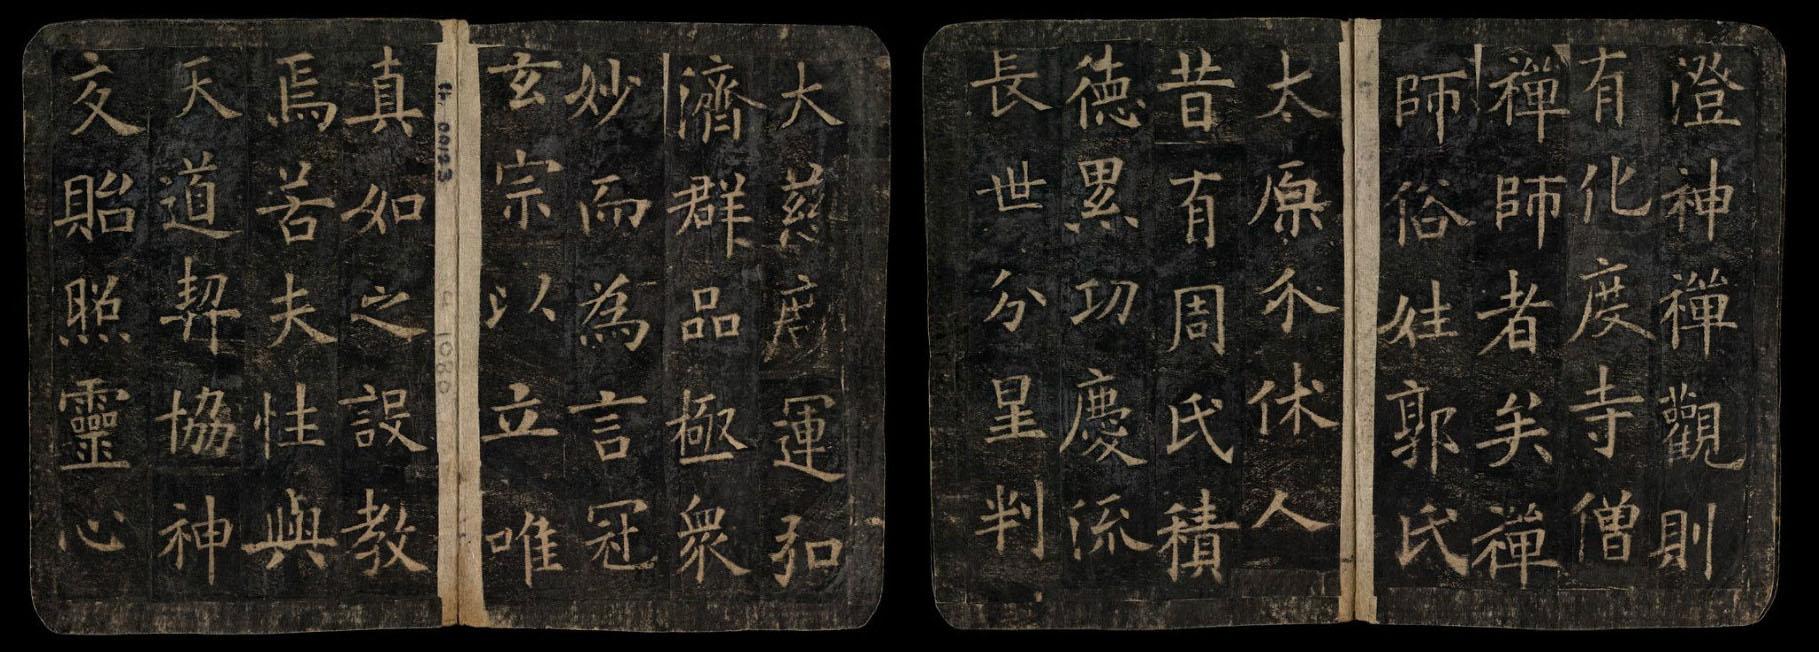 大慈度運弘
濟群品極衆
妙而為言冠
玄宗以立唯
ch. 00123
1080
真如之設教
焉若夫性與
天道契協神
交貽照靈心
澄神禪觀則
有化度寺僧
禪師者矣禪
師俗姓郭氏
太原介休人
昔有周氏積
德累功慶流
長世分星判